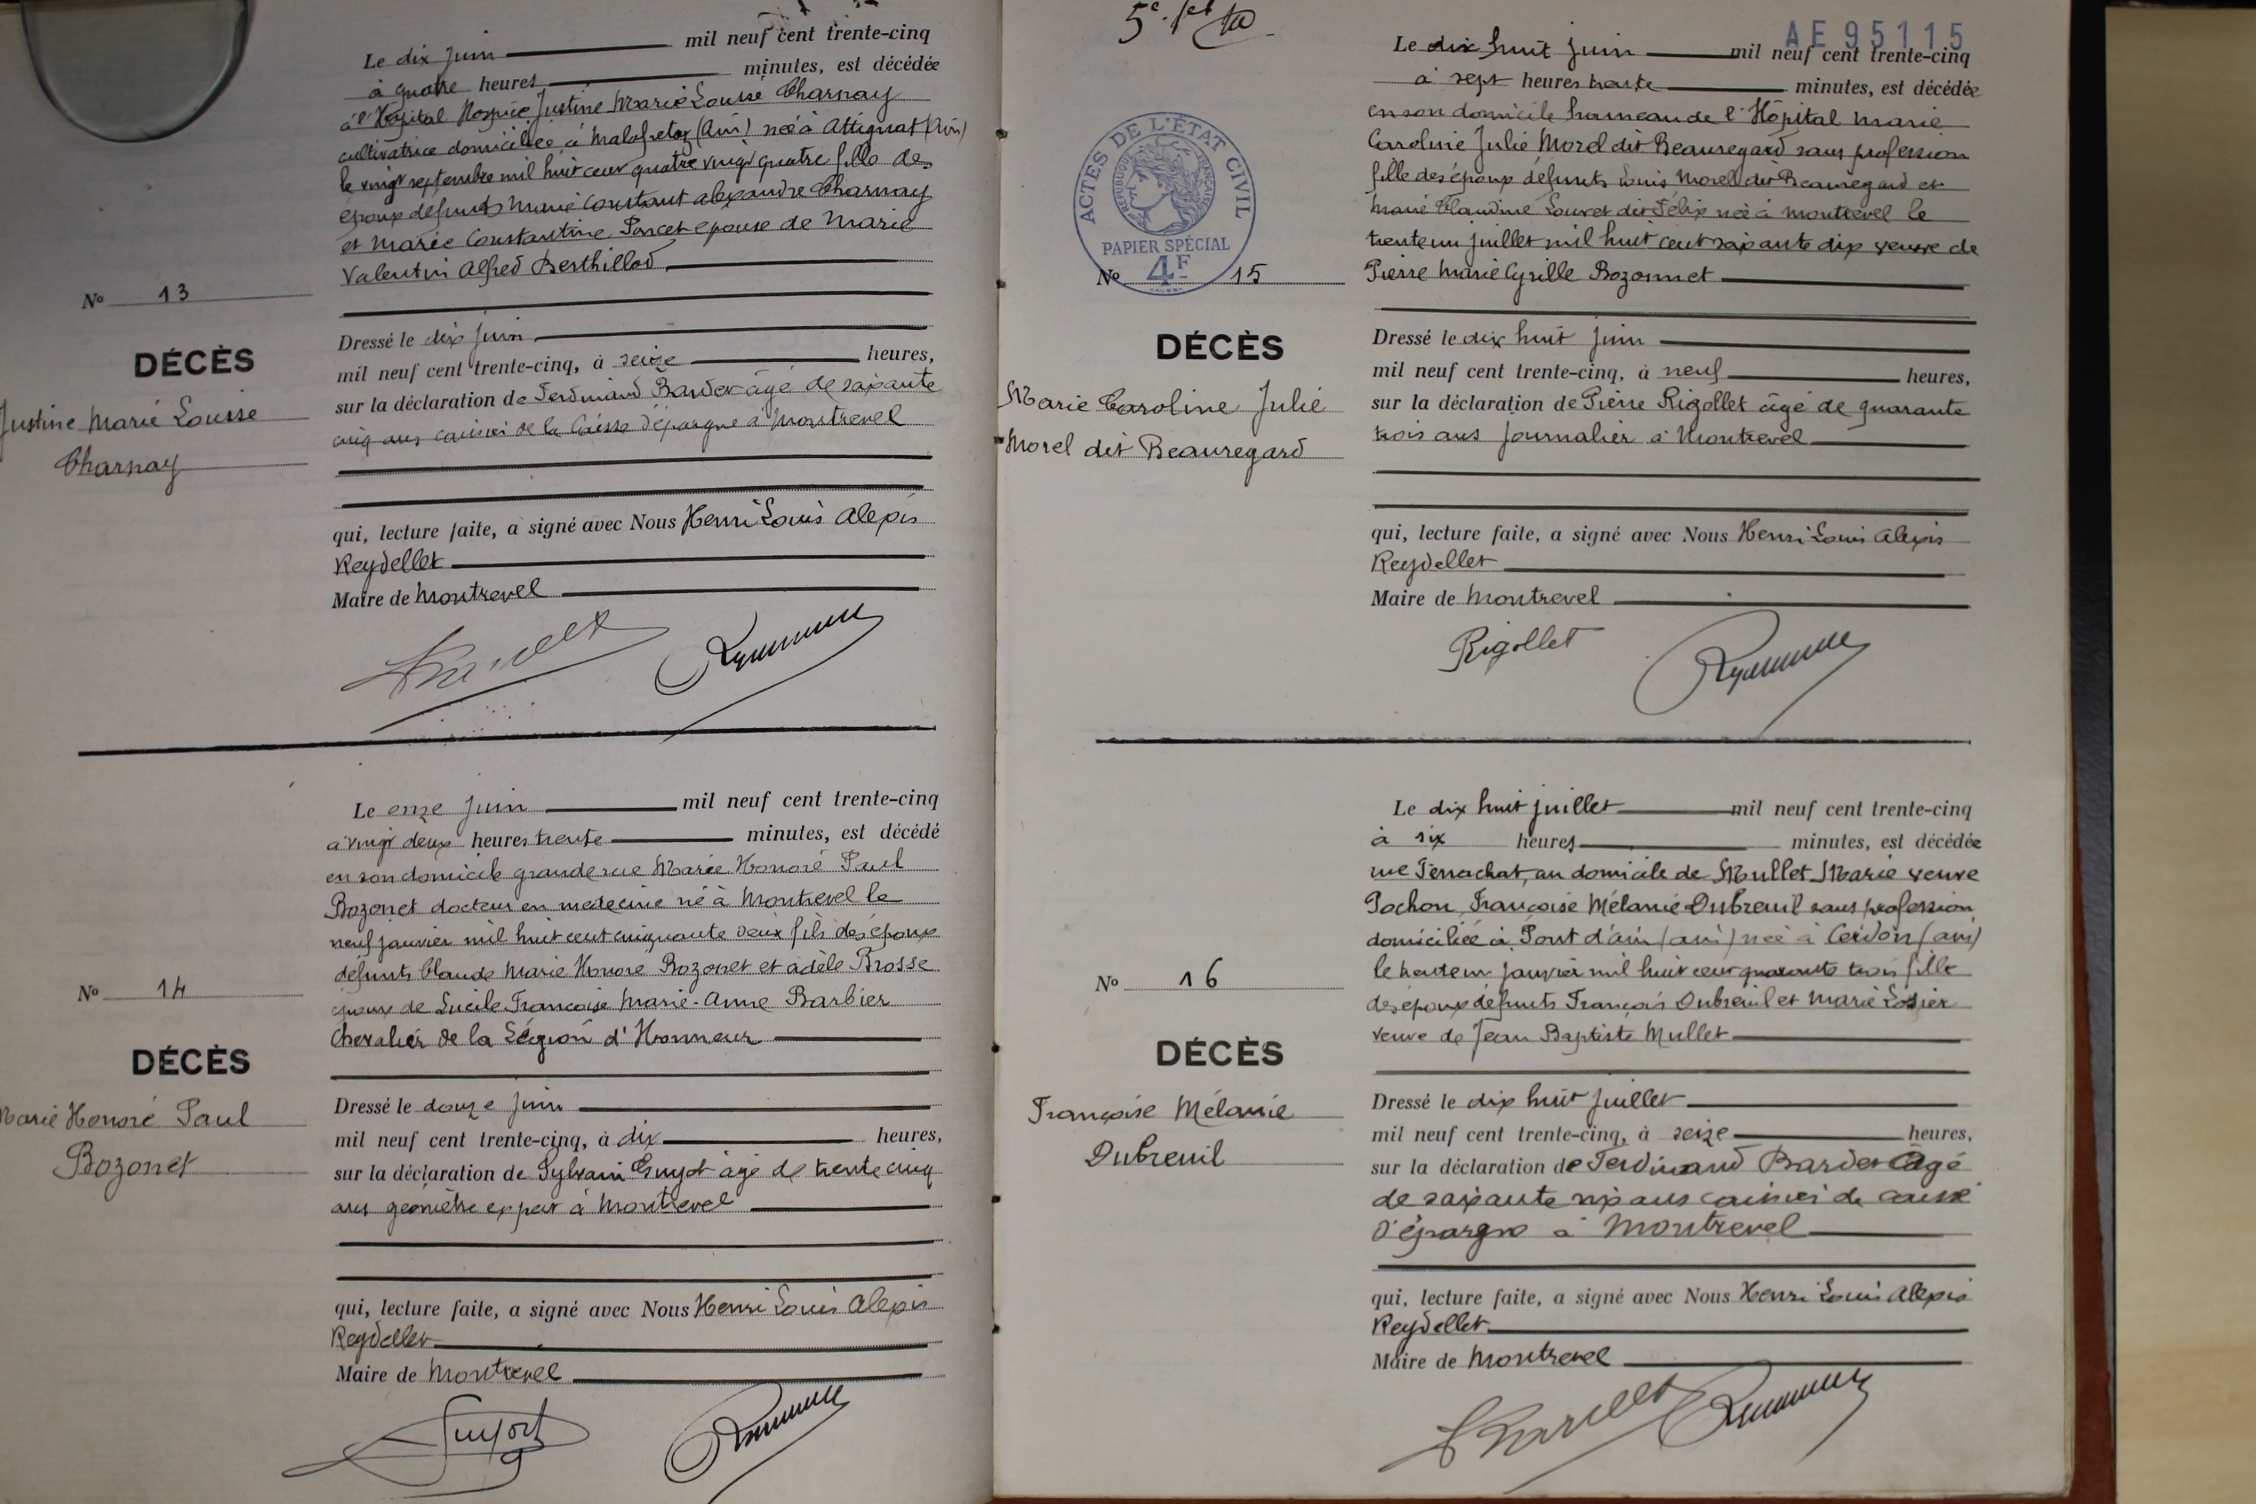 Le dix juin mil neuf cent trente-cinq
à quatre heures minutes, est décédée
à l'Hôpital Hospice Justine Marie Louise Charnay
cultivatrice domiciliée à Malafretaz (Ain) née à Attignat (Ain)
le vingt septembre mil huit cent quatre vingt quatre fille des
époux défunts Marie Constant Alexandre Charnay
et Marie Constantine Poncet épouse de Marie
Valentin Alfred Berthillod
No 13
DÉCÈS
Justine Marie Louise
Charnay
Dressé le dix juin
mil neuf cent trente-cinq, à seize heures,
sur la déclaration de Ferdinand Bardet âgé de soixante
cinq ans caissier de la Caisse d'épargne à Montrevel
qui, lecture faite, a signé avec Nous Henri Louis Alexis
Reydellet
Maire de Montrevel
Le onze juin mil neuf cent trente-cinq
à vingt deux heures trente minutes, est décédé
en son domicile grande rue Marie Honoré Paul
Bozonet docteur en medecine né à Montrevel le
neuf janvier mil huit cent cinquante deux fils des époux
défunts Claude Marie Honoré Bozonet et Adèle Brosse
époux de Lucile Françoise Marie-Anne Barbier
Chevalier de la Légion d'Honneur
No 14
DÉCÈS
Marie Honoré Paul
Bozonet
Dressé le douze juin
mil neuf cent trente-cinq, à dix heures,
sur la déclaration de Sylvain Guyot âgé de trente cinq
ans géomètre expert à Montrevel
qui, lecture faite, a signé avec Nous Henri Louis Alexis
Reydellet
Maire de Montrevel
Guyot
5e. fet
AE95115
Le dix huit juin mil neuf cent trente-cinq
à sept heures trente minutes, est décédée
en son domicile hameau de l'Hôpital Marie
Caroline Julie Morel dit Beauregard sans profession
fille des époux défunts Louis Morel dit Beauregard et
Marie Claudine Louvet dit Félix née à Montrevel le
trente un juillet mil huit cent soixante dix veuve de
Pierre Marie Cyrille Bozonnet
ACTES DE L'ÉTAT CIVIL
RÉPUBLIQUE FRANÇAISE
PAPIER SPÉCIAL
4F
No 15
DÉCÈS
Marie Caroline Julie
Morel dit Beauregard
Dressé le dix huit juin
mil neuf cent trente-cinq, à neuf heures,
sur la déclaration de Pierre Rigollet âgé de quarante
trois ans journalier à Montrevel
qui, lecture faite, a signé avec Nous Henri Louis Alexis
Reydellet
Maire de Montrevel
Rigollet
Le dix huit juillet mil neuf cent trente-cinq
à six heures minutes, est décédée
rue Ferrachat, au domicile de Mullet Marie veuve
Pochon, Françoise Mélanie Dubreuil sans profession
domiciliée à Pont d'ain (ain) née à Cerdon (ain)
le trente un janvier mil huit cent quarante trois fille
des époux défunts François Dubreuil et Marie Losier
veuve de Jean Baptiste Mullet
No 16
DÉCÈS
Françoise Mélanie
Dubreuil
Dressé le dix huit juillet
mil neuf cent trente-cinq, à seize heures,
sur la déclaration de Ferdinand Bardet âgé
de soixante six ans caissier de caisse
d'épargne à Montrevel
qui, lecture faite, a signé avec Nous Henri Louis Alexis
Reydellet
Maire de Montrevel